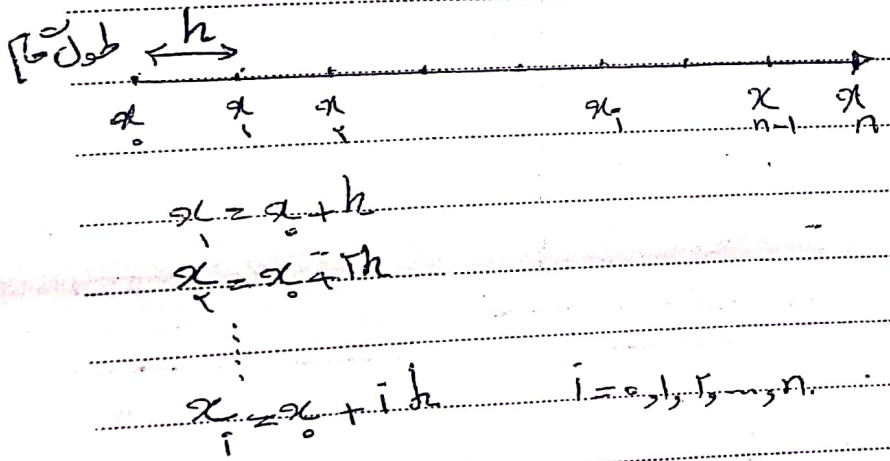 طول گام h
x₀ x₁ x₂ xᵢ xₙ₋₁ xₙ
x₁ = x₀ + h
x₂ = x₀ + ۲h
⋮
xᵢ = x₀ + ih i = ۰, ۱, ۲, ..., n.